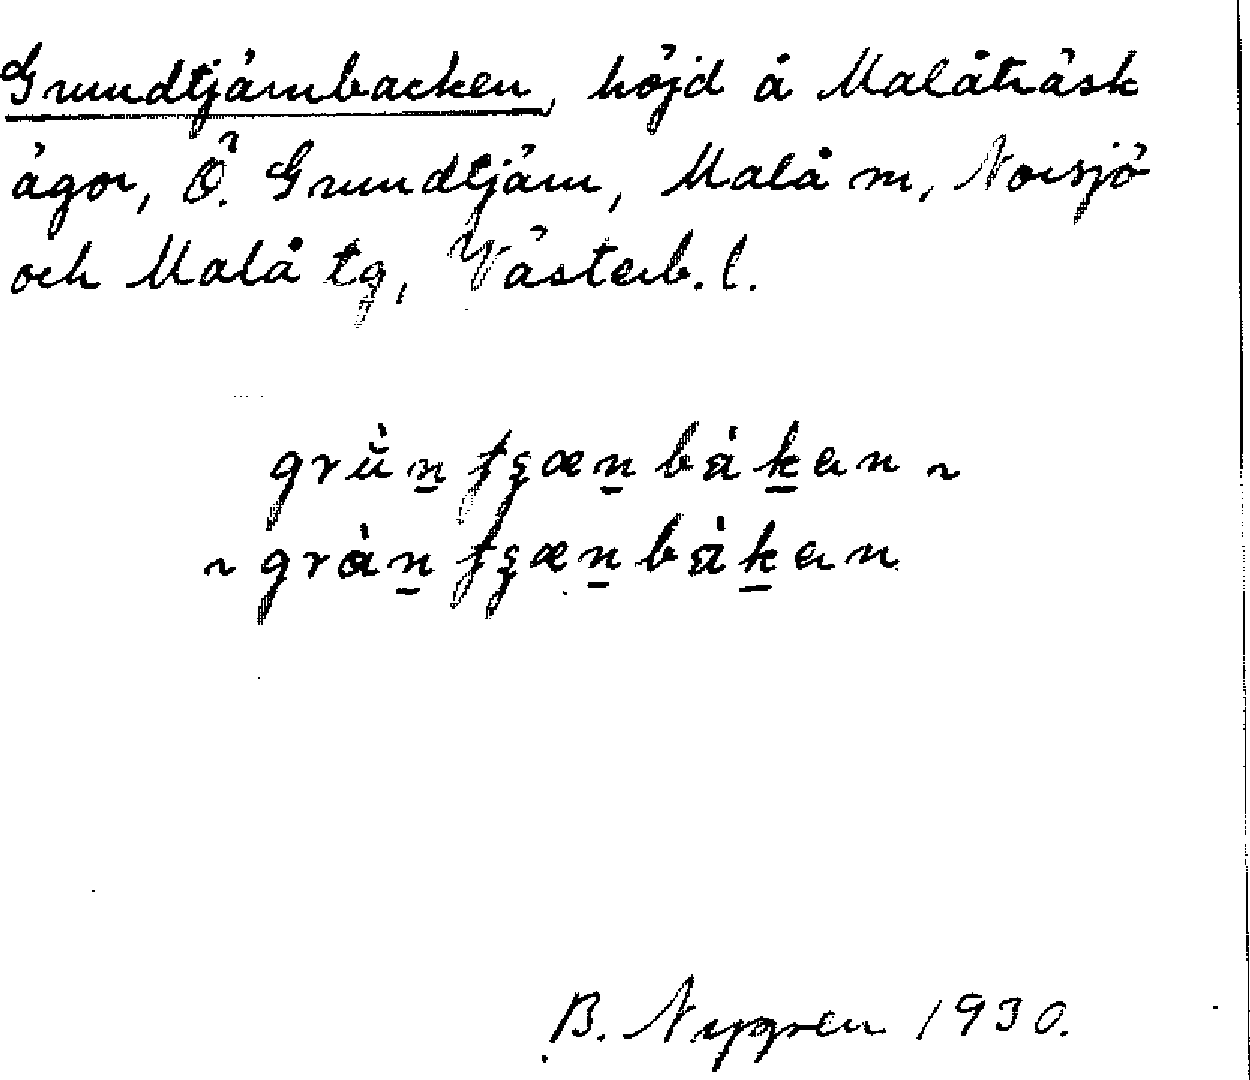 Grundtjärnbacken, höjd å Malåträsk
ägor, Ö. Grundtjärn, Malå sn, Norsjö
och Malå tg, Västerb. l.
grù̆n̠ tʂæn̠ bàk̠an ~
~ gràn̠ tʂæn̠ bàk̠an
B. Nygren 1930.